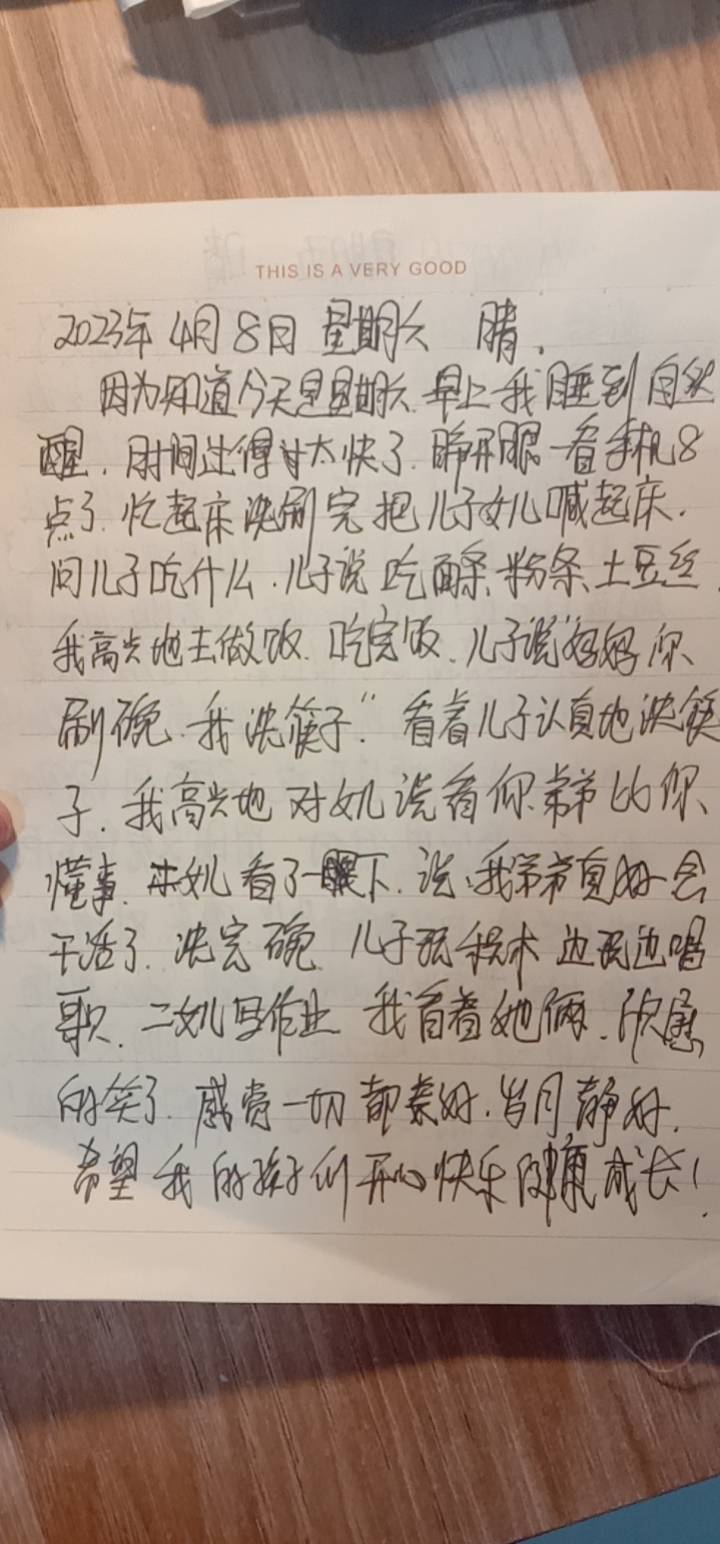 THIS IS A VERY GOOD
2023年4月8日 星期六 晴.
因为知道今天是星期六.早上我睡到自然
醒.时间过得太快了.睁开眼一看手机8
点了.忙起床洗刷完把儿子女儿喊起床.
问儿子吃什么.儿子说吃酥条、粉条、土豆丝.
我高兴地去做饭.吃完饭.儿子说"妈妈你、
刷碗、我洗筷子."看着儿子认真地洗筷
子.我高兴地对女儿说看你弟弟比你、
懂事.女儿看了一眼下.说、我弟弟真好会
干活了.洗完碗.儿子玩积木边玩边唱
歌.二女儿写作业 我看着她俩、欣慰
的笑了.感觉一切都亲好.岁月静好.
希望我的孩子们开心快乐健康成长!